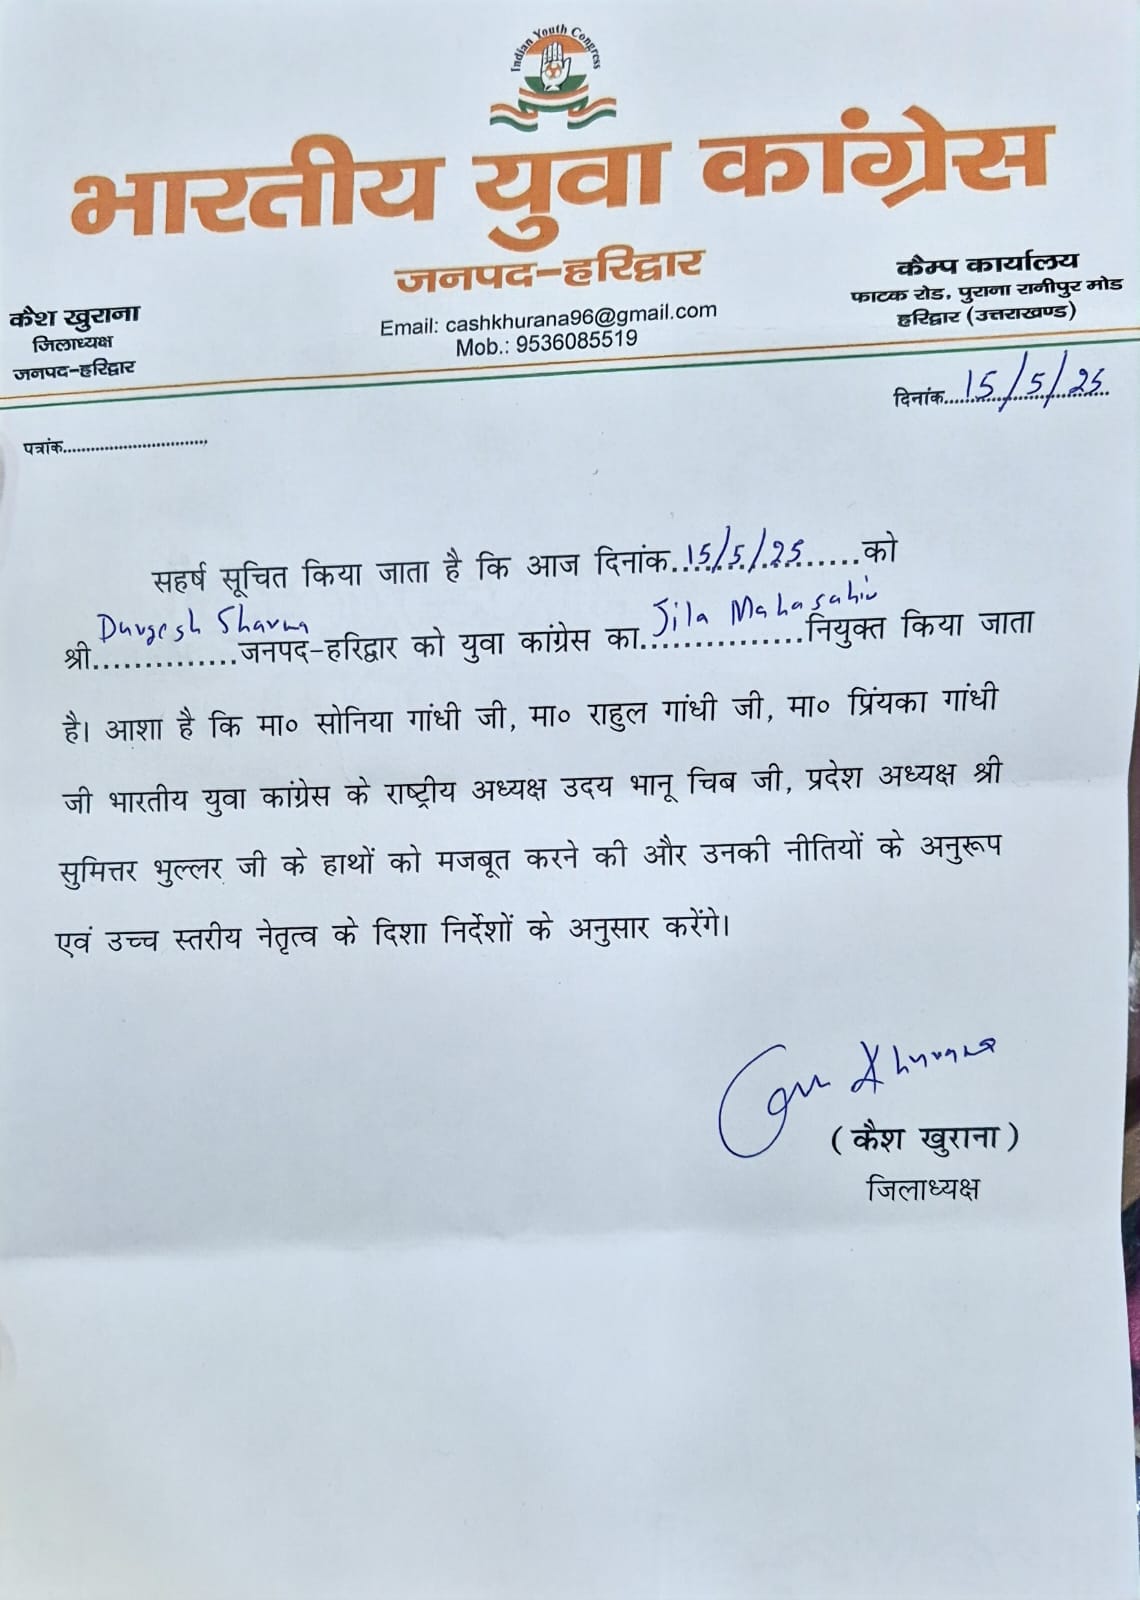 Indian Youth Congress
भारतीय युवा कांग्रेस
जनपद-हरिद्वार
Email: cashkhurana96@gmail.com
Mob.: 9536085519
कैश खुराना
जिलाध्यक्ष
जनपद-हरिद्वार
कैम्प कार्यालय
फाटक रोड, पुराना रानीपुर मोड
हरिद्वार (उत्तराखण्ड)
दिनांक 15/5/25
पत्रांक
सहर्ष सूचित किया जाता है कि आज दिनांक 15/5/25 को
श्री Durgesh Sharma जनपद-हरिद्वार को युवा कांग्रेस का Jila Mahasahiv नियुक्त किया जाता
है। आशा है कि मा० सोनिया गांधी जी, मा० राहुल गांधी जी, मा० प्रिंयका गांधी
जी भारतीय युवा कांग्रेस के राष्ट्रीय अध्यक्ष उदय भानू चिब जी, प्रदेश अध्यक्ष श्री
सुमित्तर भुल्लर जी के हाथों को मजबूत करने की और उनकी नीतियों के अनुरूप
एवं उच्च स्तरीय नेतृत्व के दिशा निर्देशों के अनुसार करेंगे।
Khurana
( कैश खुराना )
जिलाध्यक्ष